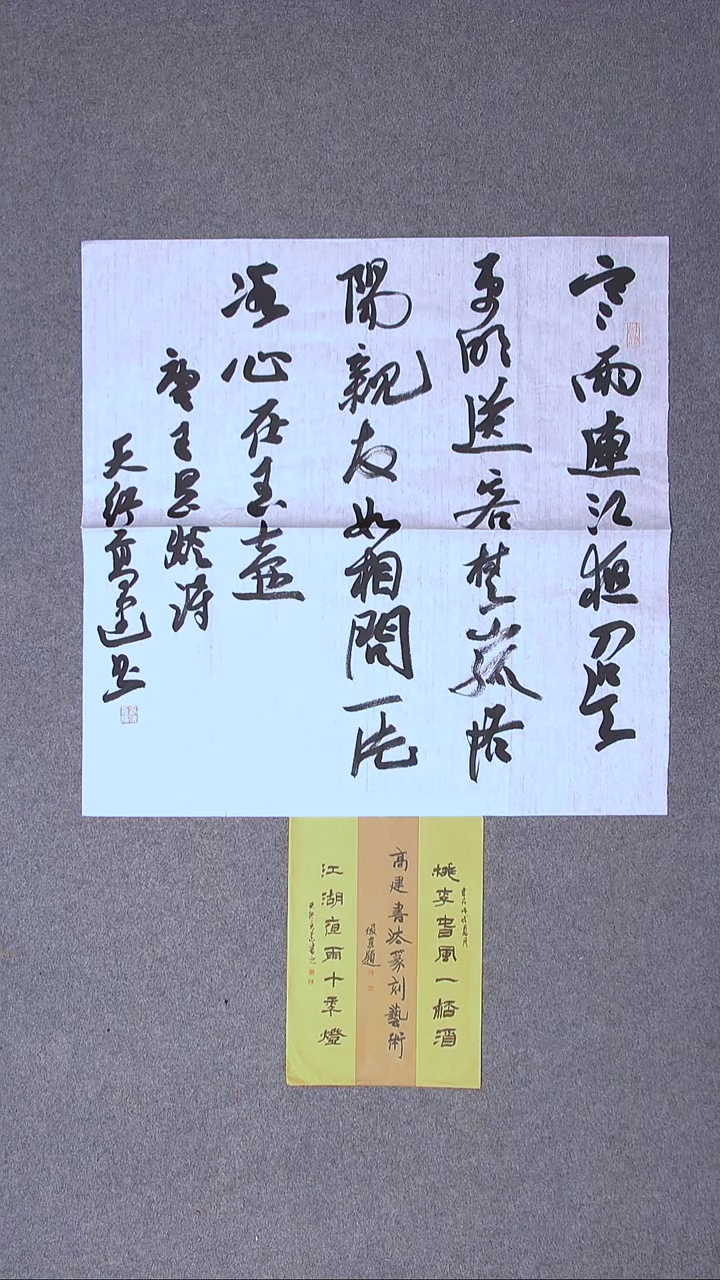 寒雨連江夜入吴
平明送客楚山孤洛
陽親友如相問一片
冰心在玉壺
唐王昌齡詩
高建书
桃李春風一桮酒
高建書法篆刻藝術
題
江湖夜雨十年燈